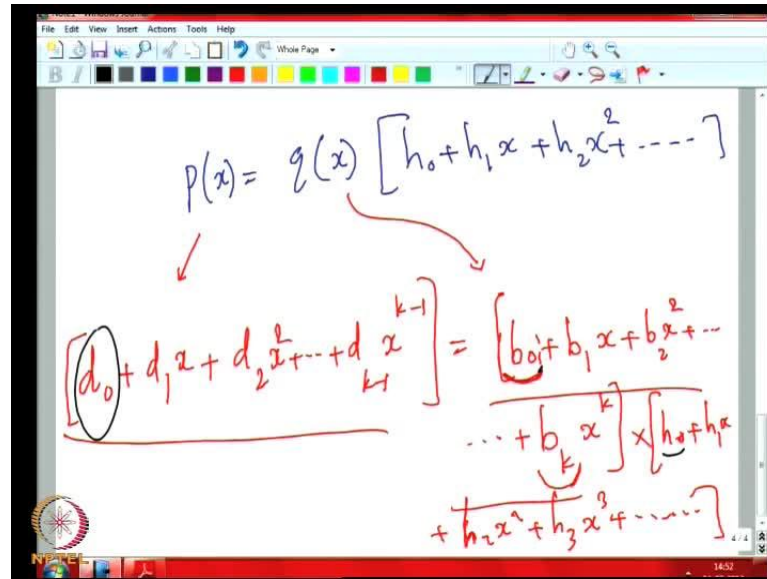 File Edit View Insert Actions Tools Help
Whole Page
B I
p(x) = q(x) [h₀ + h₁x + h₂x² + -----]
[d₀ + d₁x + d₂x² + ... + d_{k-1} x^{k-1}] = [b₀ + b₁x + b₂x² + ...
... + b_k x^k] × [h₀ + h₁x
+ h₂x² + h₃x³ + ......]
NPTEL
4/4
14:52